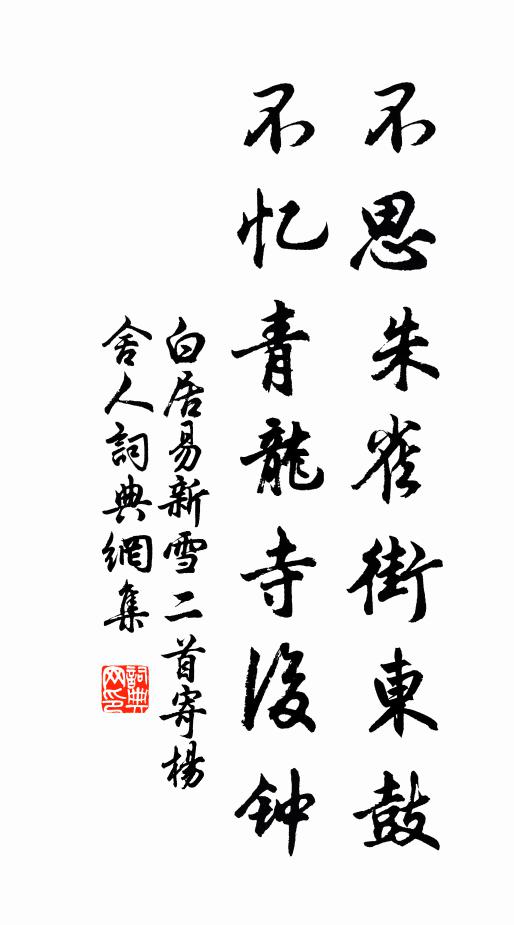 不思朱雀街東鼓
不忆青龍寺後钟
白居易新雪二首寄楊
舍人詞典網集
詞典
网印